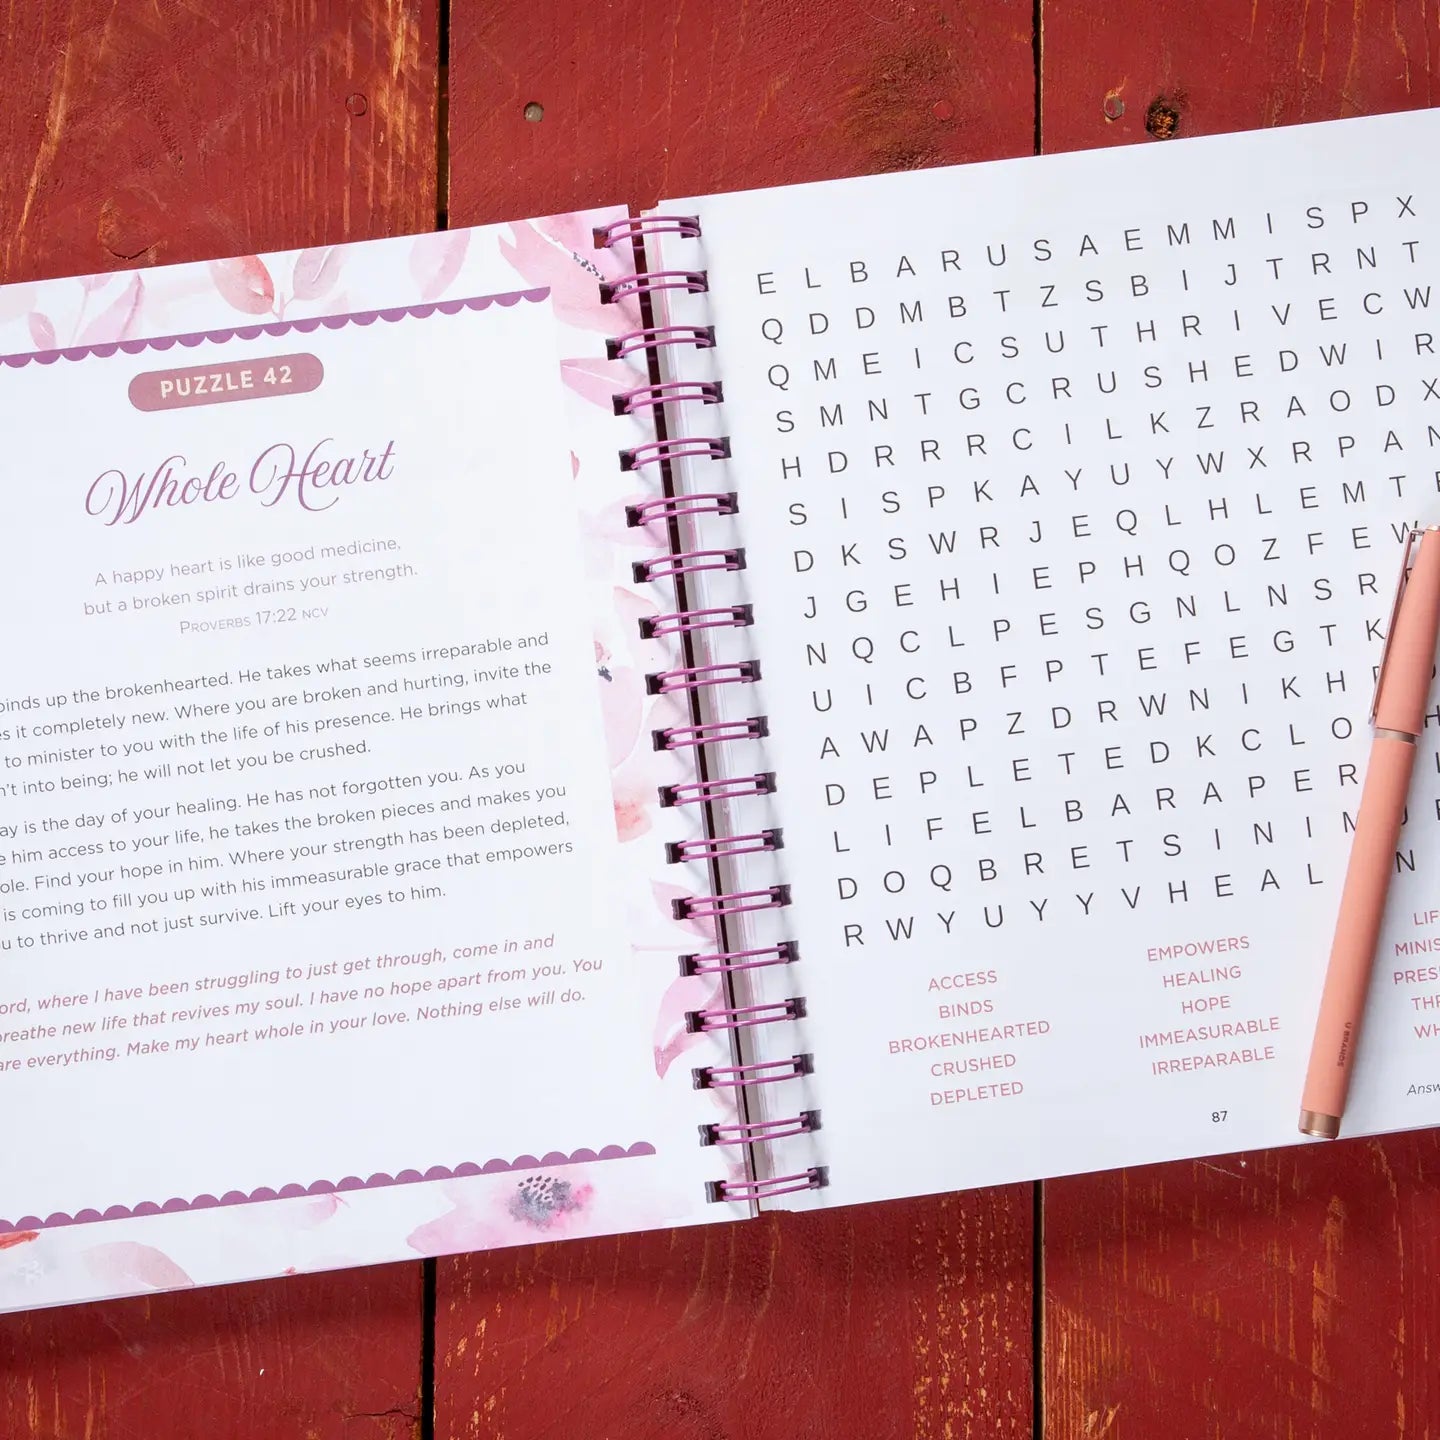 PUZZLE 42
Whole Heart
A happy heart is like good medicine,
but a broken spirit drains your strength.
PROVERBS 17:22 NCV
binds up the brokenhearted. He takes what seems irreparable and
it completely new. Where you are broken and hurting, invite the
to minister to you with the life of his presence. He brings what
into being; he will not let you be crushed.
is the day of your healing. He has not forgotten you. As you
him access to your life, he takes the broken pieces and makes you
Find your hope in him. Where your strength has been depleted,
is coming to fill you up with his immeasurable grace that empowers
to thrive and not just survive. Lift your eyes to him.
where I have been struggling to just get through, come in and
breathe new life that revives my soul. I have no hope apart from you. You
are everything. Make my heart whole in your love. Nothing else will do.
E L B A R U S A E M M I S P X
Q D D M B T Z S B I J T R N T
Q M E I C S U T H R I V E C W
S M N T G C R U S H E D W I R
H D R R R C I L K Z R A O D X
S I S P K A Y U Y W X R P A N
D K S W R J E Q L H L E M T
J G E H I E P H Q O Z F E W
N Q C L P E S G N L N S R
U I C B F P T E F E G T K
A W A P Z D R W N I K H
D E P L E T E D K C L O
L I F E L B A R A P E R
D O Q B R E T S I N I M
R W Y U Y Y V H E A L N
ACCESS
BINDS
BROKENHEARTED
CRUSHED
DEPLETED
EMPOWERS
HEALING
HOPE
IMMEASURABLE
IRREPARABLE
87
U BRANDS